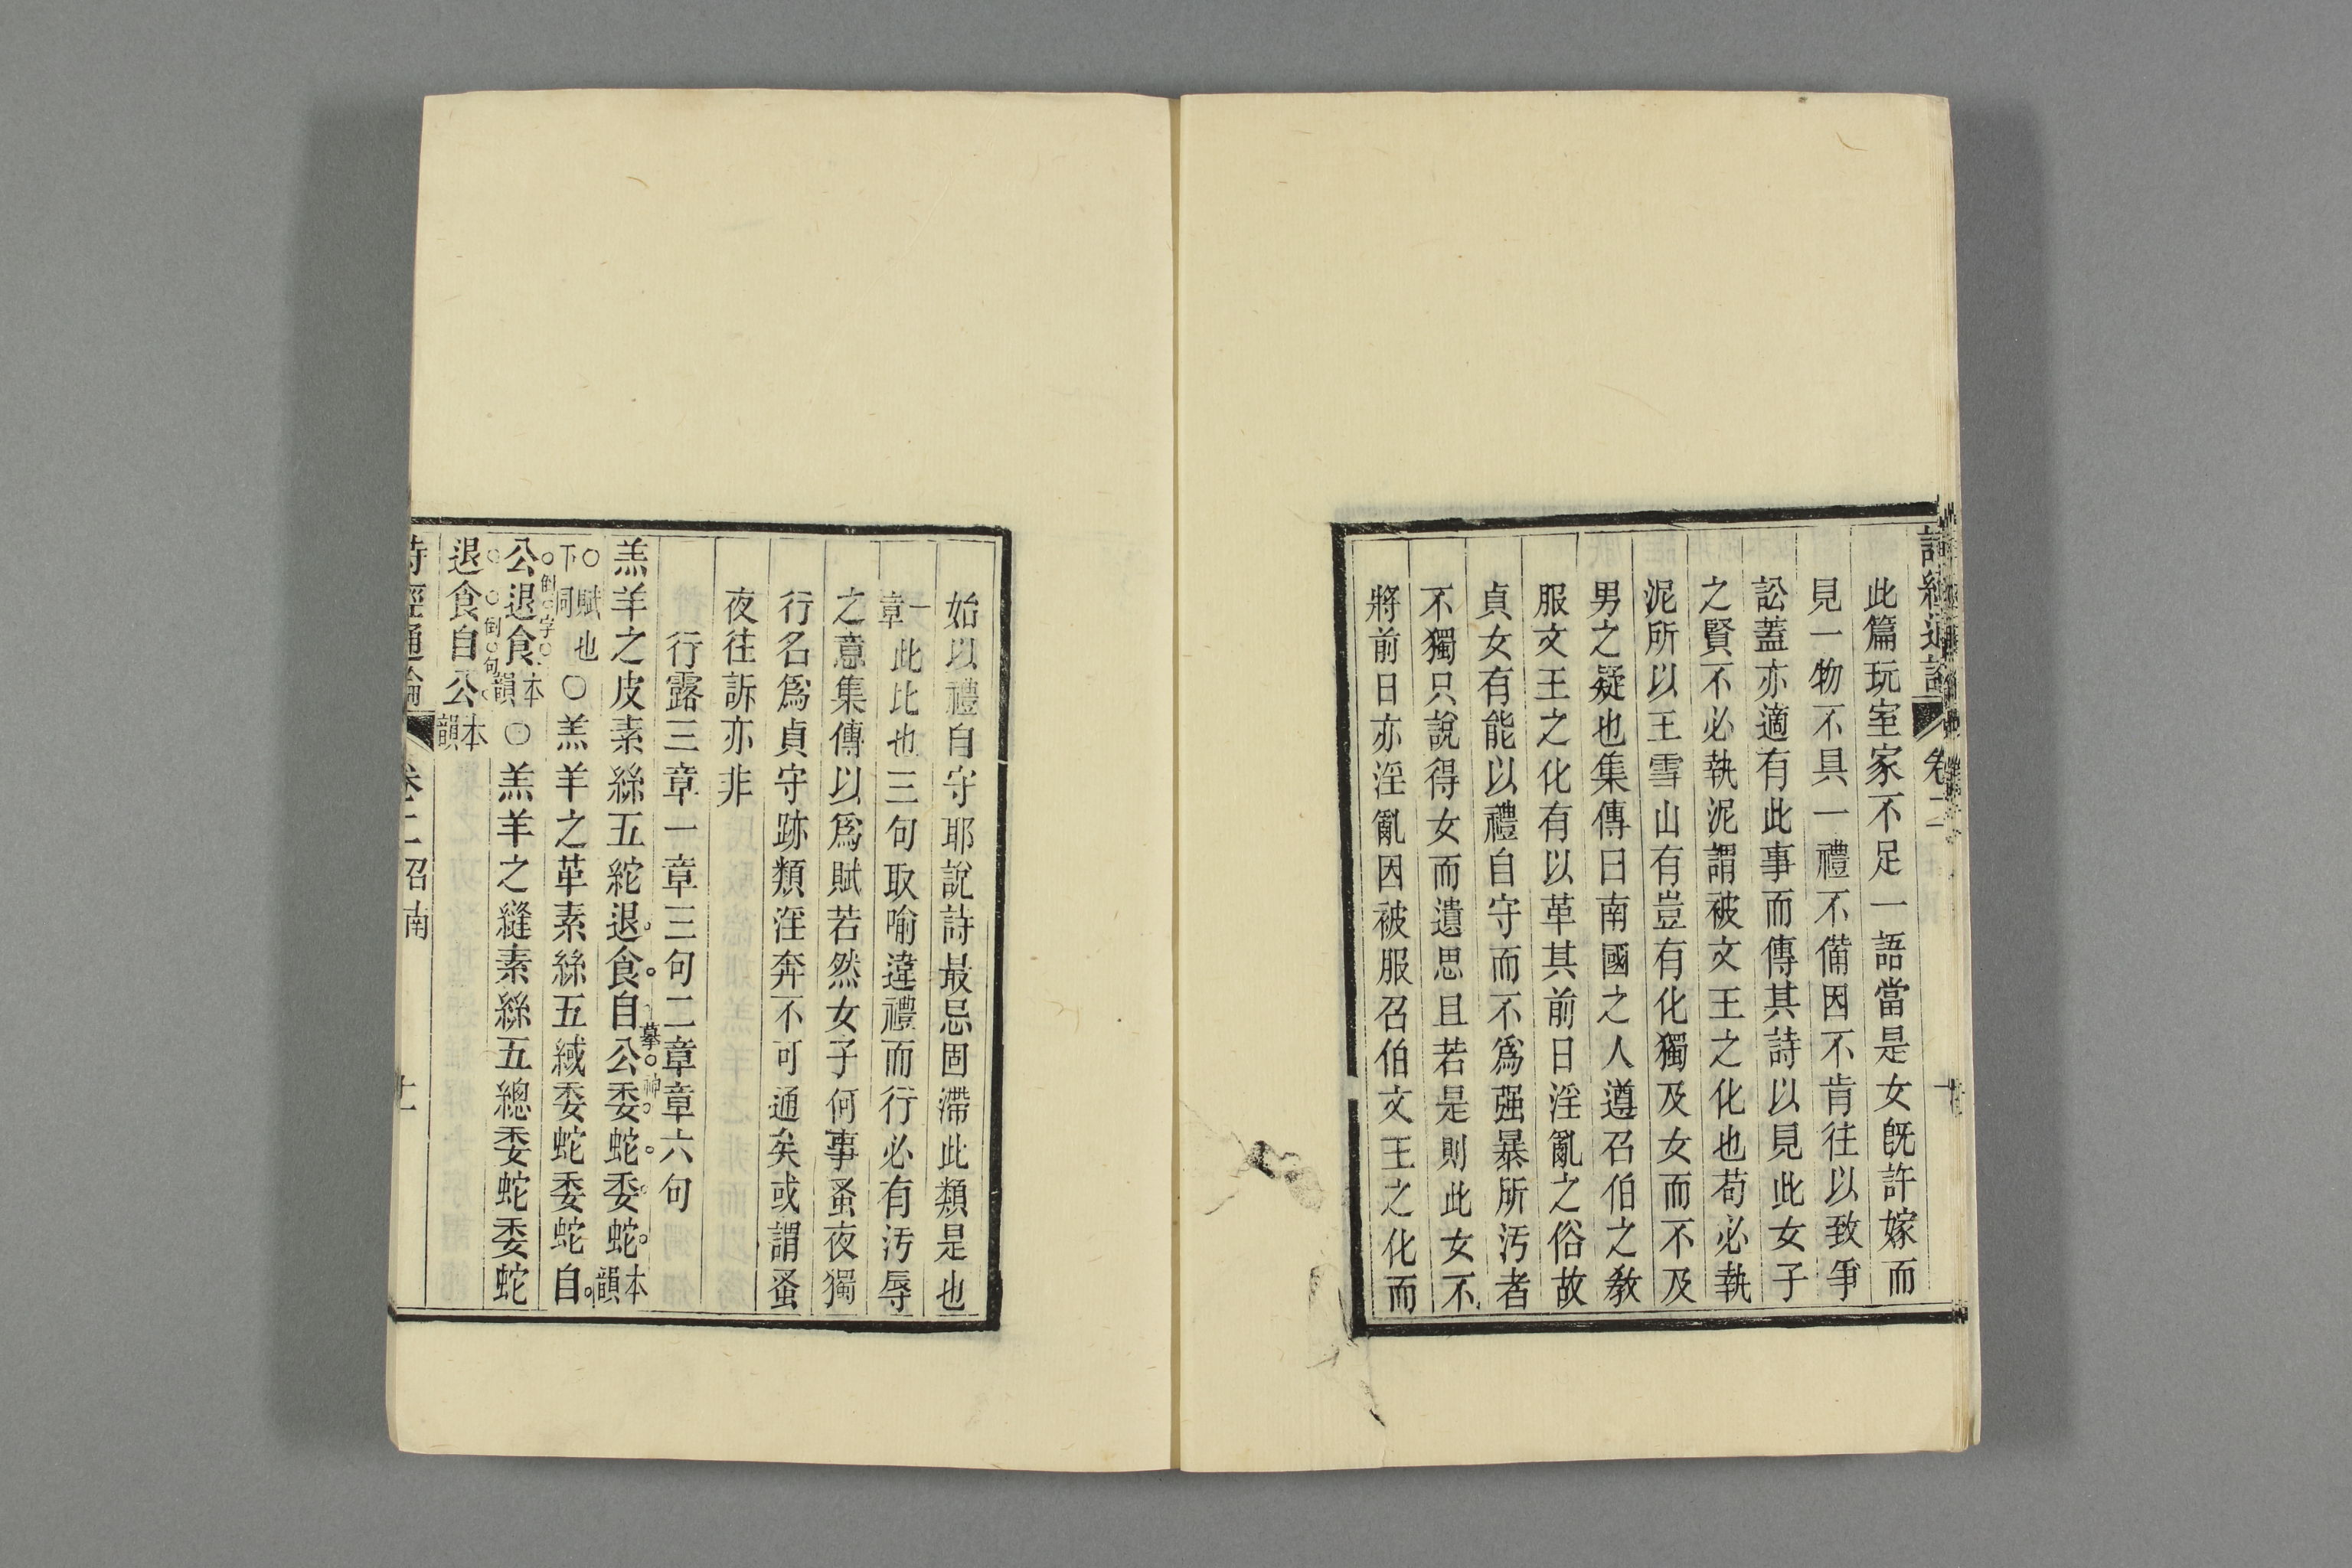 詩經通論 卷二
此篇玩室家不足一語當是女旣許嫁而
見一物不具一禮不備因不肯往以致爭
訟蓋亦適有此事而傳其詩以見此女子
之賢不必執泥謂被文王之化也苟必執
泥所以王雪山有豈有化獨及女而不及
男之疑也集傳曰南國之人遵召伯之敎
服文王之化有以革其前日淫亂之俗故
貞女有能以禮自守而不爲强暴所汚者
不獨只說得女而遺男思且若是則此女不
將前日亦淫亂因被服召伯文王之化而
始以禮自守耶說詩最忌固滯此類是也
一章此比也三句取喻違禮而行必有汚辱
之意集傳以爲賦若然女子何事蚤夜獨
行名爲貞守跡類淫奔不可通矣或謂蚤
夜往訴亦非
行露三章一章三句二章章六句
羔羊之皮素絲五紽退食自公委蛇委蛇本韻
摹神
○賦也下同○羔羊之革素絲五緎委蛇委蛇自
公退食本韻○羔羊之縫素絲五總委蛇委蛇
倒字
退食自公本韻
倒句
詩經通論 卷二 召南